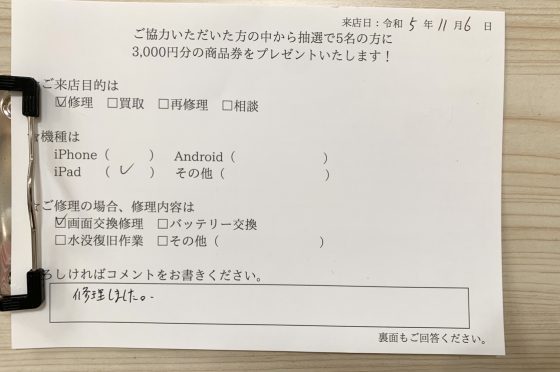 来店日：令和 5 年 11 月 6 日
ご協力いただいた方の中から抽選で5名の方に
3,000円分の商品券をプレゼントいたします！
☆ご来店目的は
☑修理 □買取 □再修理 □相談
☆機種は
iPhone（ ） Android（ ）
iPad （ ✓ ） その他（ ）
☆ご修理の場合、修理内容は
☑画面交換修理 □バッテリー交換
□水没復旧作業 □その他（ ）
ろしければコメントをお書きください。
修理しました。
裏面もご回答ください。